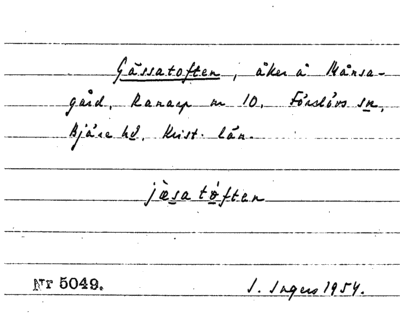 Gässatoften, åker å Månsa-
gård, Ranarp nr 10, Förslövs sn,
Bjäre hd, Krist. län.
jæsatóften
Nr 5049.
I. Ingers 1954.